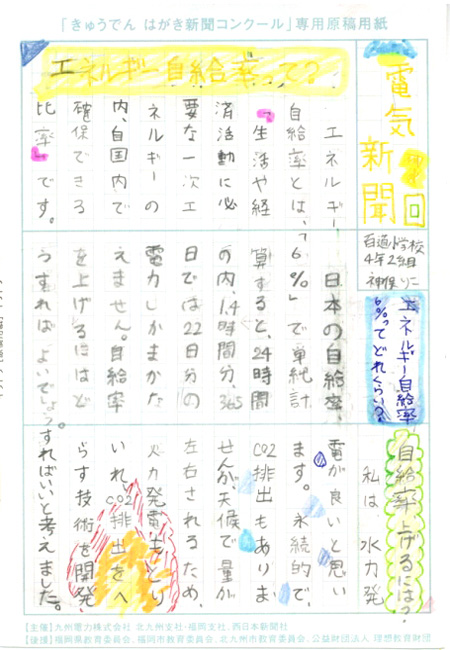 「きゅうでん はがき新聞コンクール」専用原稿用紙
電気新聞
回
百道小学校
4年2組
エネルギー自給率って?
エネルギー
自給率とは、
「生活や経
済活動に必
要な一次エ
ネルギーの
内、自国内で
確保できる
比率」です。
エネルギー自給率
6%ってどれくらい?
日本の自給率、
「6%」で単純計
算すると、24時間
の内、1.4時間分、365
日では22日分の
電力しかまかな
えません。自給率
を上げるにはど
うすれば よいでしょう
自給率上げるには?
私は、水力発
電が良いと思い
ます。永続的で、
CO2排出もありま
せんが、天候で量が
左右されるため、
火力発電もとり
いれ、CO2排出をへ
らす技術を開発
すればいいと考えました。
【主催】九州電力株式会社 北九州支社・福岡支社、西日本新聞社
【後援】福岡県教育委員会、福岡市教育委員会、北九州市教育委員会、公益財団法人 理想教育財団